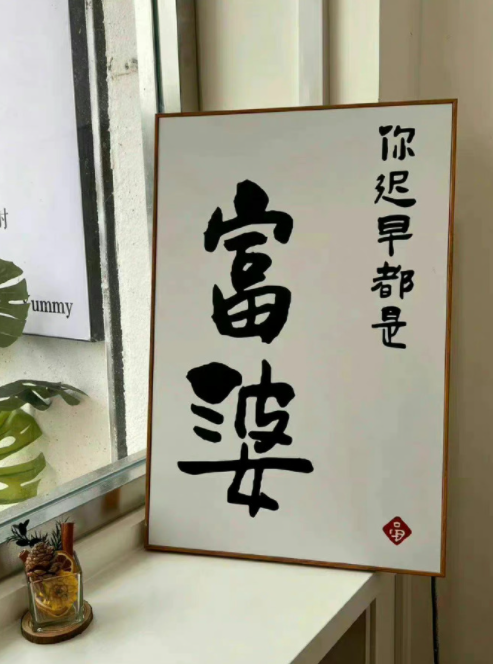 你迟早都是
富婆
yummy